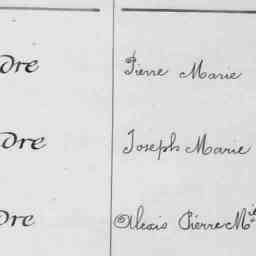 dre Pierre Marie
dre Joseph Marie
dre Alexis Pierre Mie